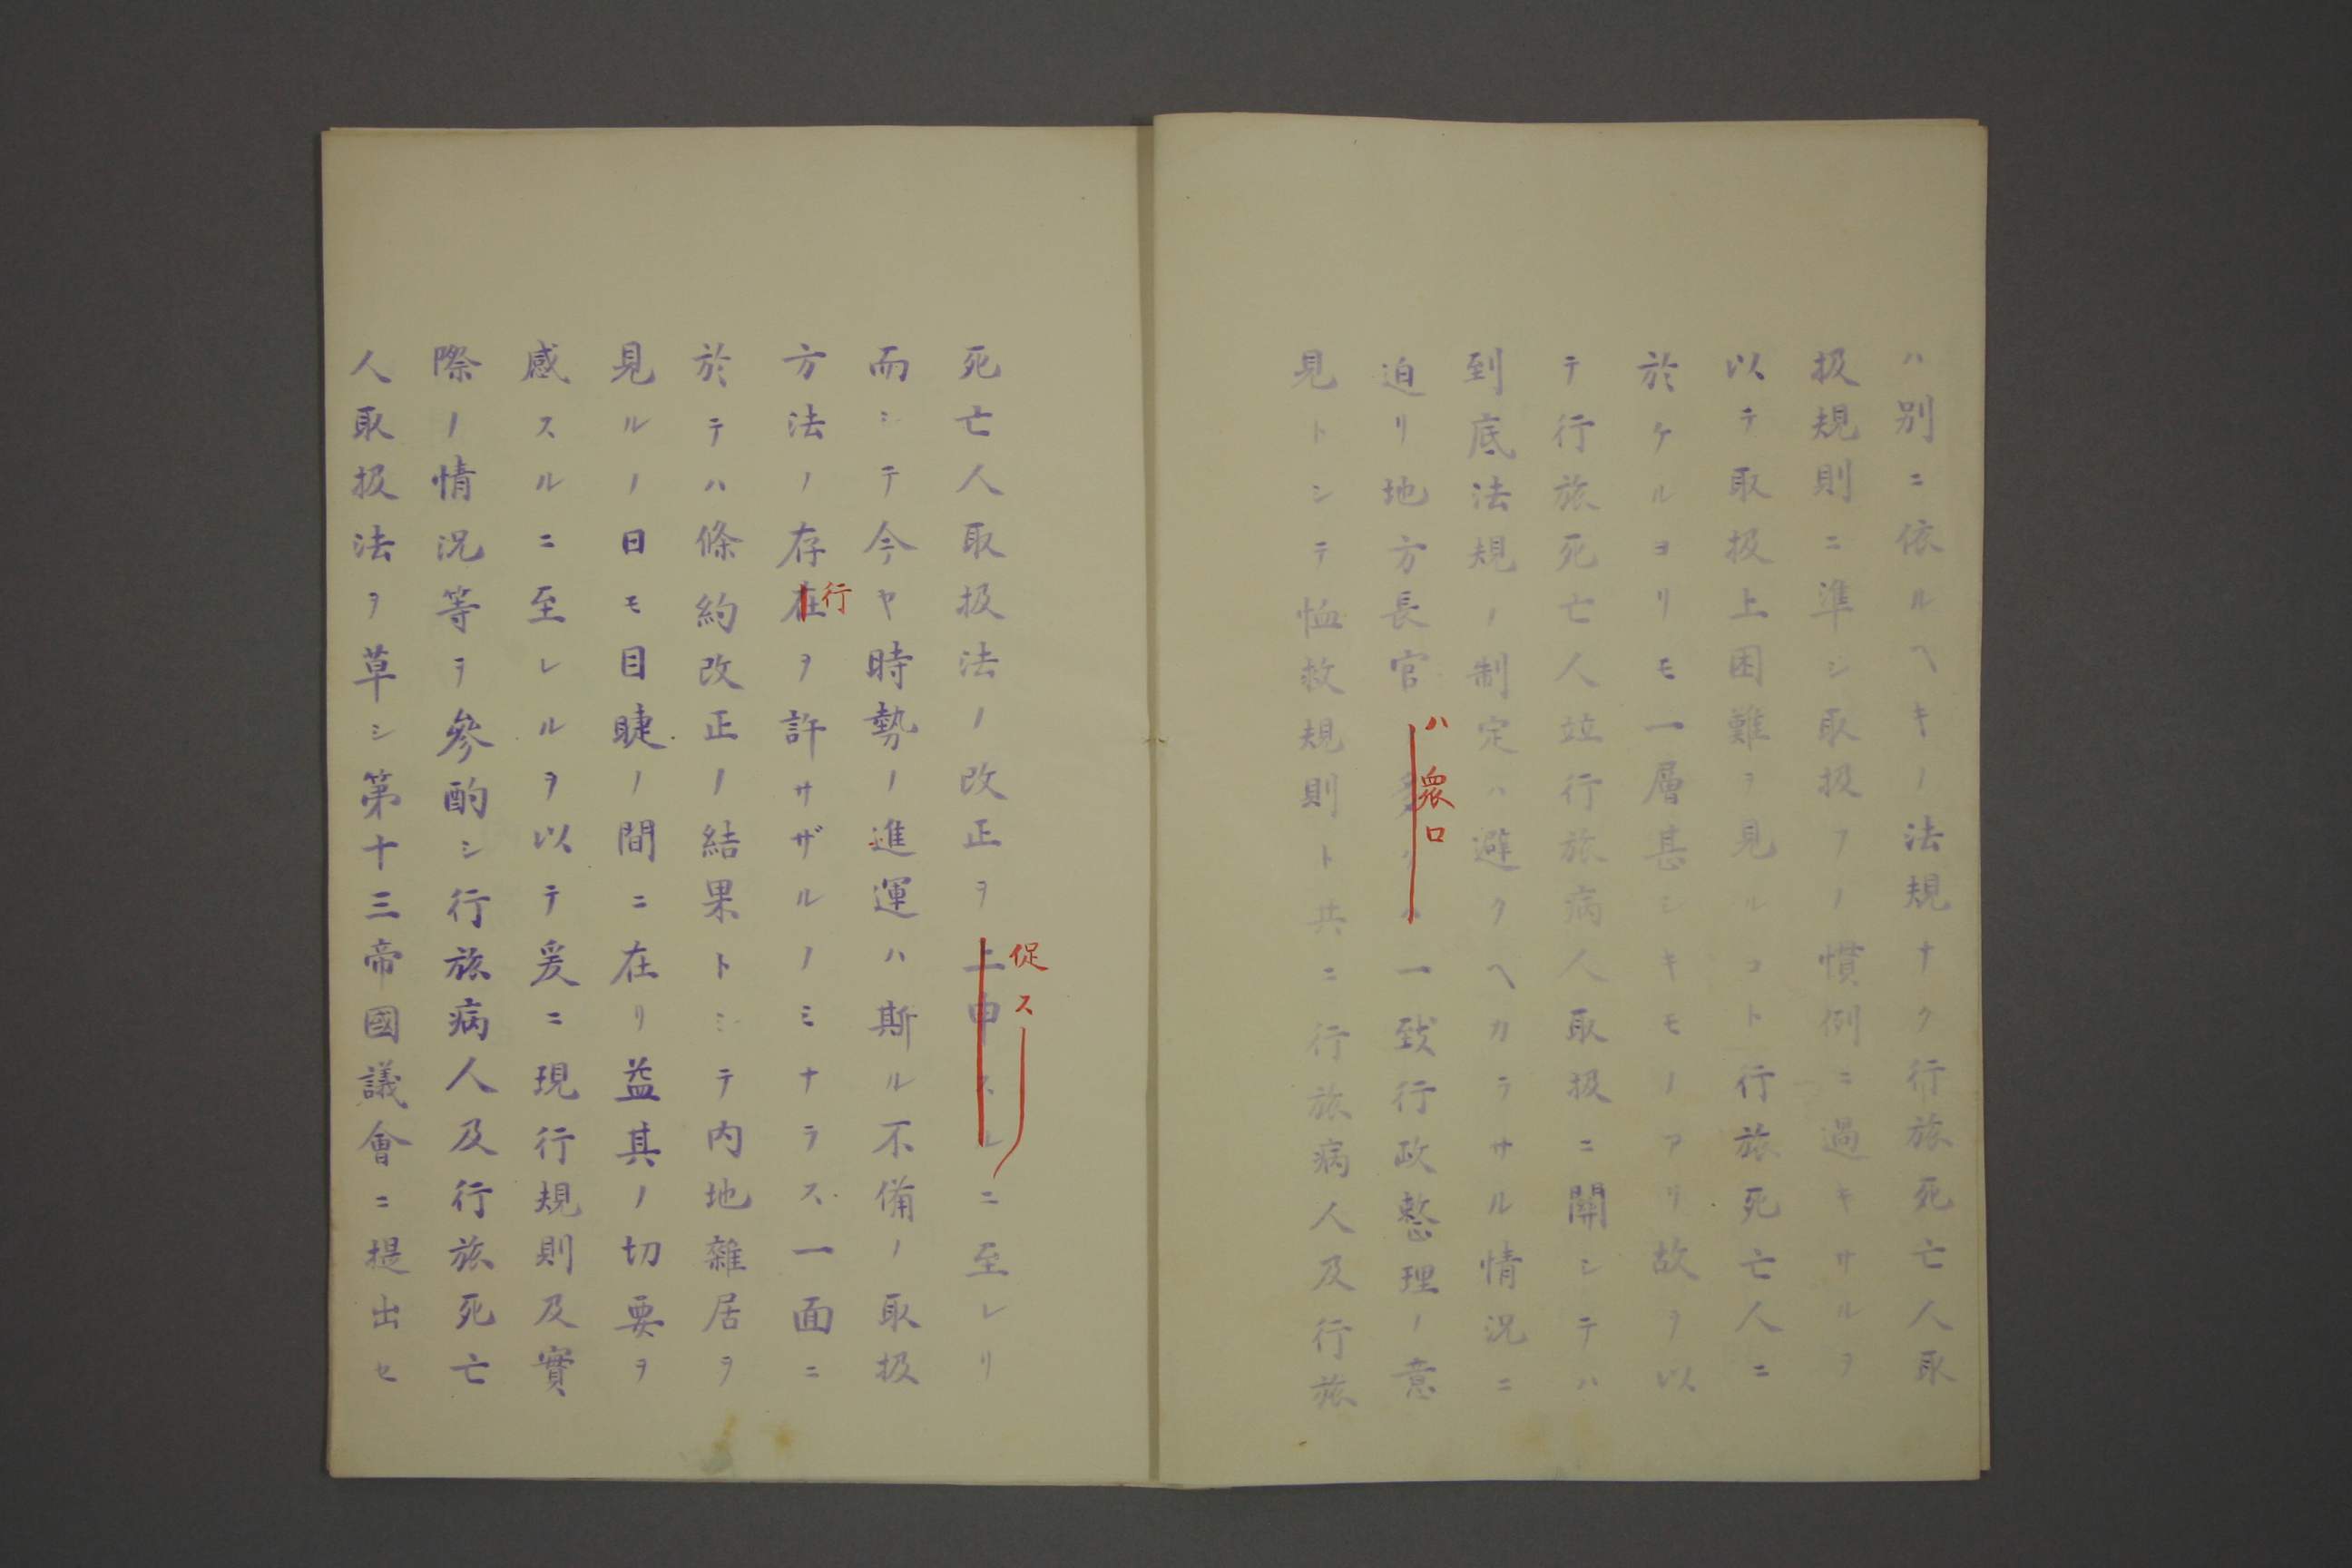 ハ別ニ依ルヘキノ法規ナク行旅死亡人取
扱規則ニ準シ取扱フノ慣例ニ過キサルヲ
以テ取扱上困難ヲ見ルコト行旅死亡人ニ
於ケルヨリモ一層甚シキモノアリ故ヲ以
テ行旅死亡人竝行旅病人取扱ニ關シテハ
到底法規ノ制定ハ避クヘカラサル情況ニ
迫リ地方長官多クハ一致行政整理ノ意
ハ衆口
見トシテ恤救規則ト共ニ行旅病人及行旅
死亡人取扱法ノ改正ヲ上申スルニ至レリ
促ス
而シテ今ヤ時勢ノ進運ハ斯ル不備ノ取扱
方法ノ存在ヲ許サザルノミナラス一面ニ
行
於テハ條約改正ノ結果トシテ内地雜居ヲ
見ルノ日モ目睫ノ間ニ在リ益其ノ切要ヲ
感スルニ至レルヲ以テ爰ニ現行規則及實
際ノ情況等ヲ參酌シ行旅病人及行旅死亡
人取扱法ヲ草シ第十三帝國議會ニ提出セ